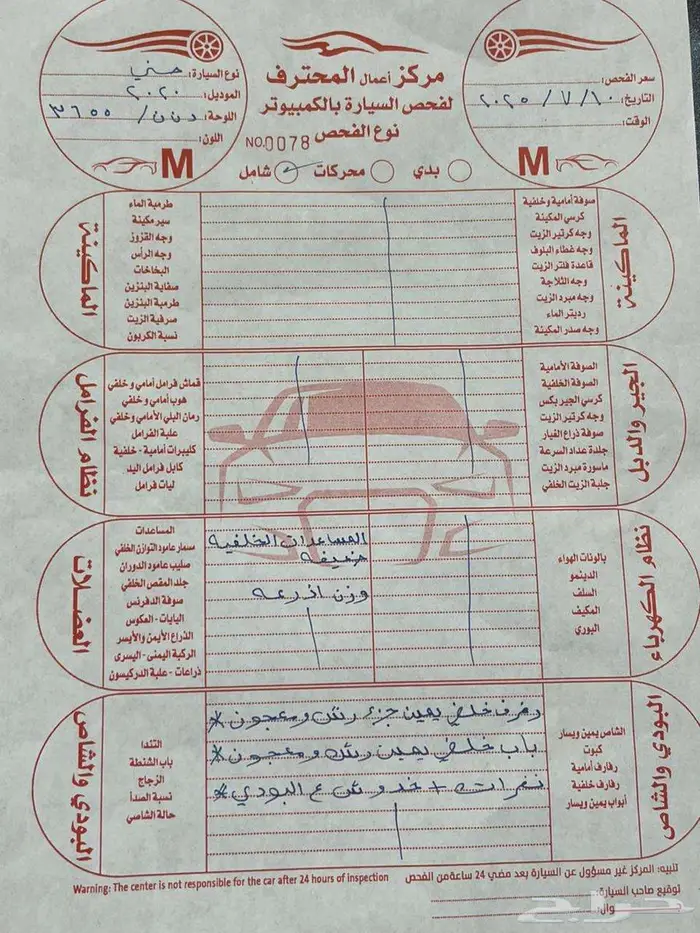 سعر الفحص:
التاريخ: ٢٠٢٥/٧/١٠
الوقت:
مركز أعمال المحترف
لفحص السيارة بالكمبيوتر
نوع الفحص
NO. 0078
بدي
محركات
شامل
نوع السيارة:
الموديل: ٢٠٢٠
اللوحة: ٣٦٥٥
اللون:
M
M
الماكينة
صوفة أمامية وخلفية
كرسي المكينة
وجه كرتير الزيت
وجه غطاء البلوف
قاعدة فلتر الزيت
وجه الثلاجة
وجه مبرد الزيت
رديتر الماء
وجه صدر المكينة
طرمبة الماء
سير مكينة
وجه القزوز
وجه الرأس
البخاخات
صفاية البنزين
طرمبة البنزين
صرفية الزيت
نسبة الكربون
الماكينة
الجير والدبل
الصوفة الأمامية
الصوفة الخلفية
كرسي الجير بكس
وجه كرتير الزيت
صوفة ذراع الغيار
جلدة عداد السرعة
ماسورة مبرد الزيت
جلبة الزيت الخلفي
قماش فرامل أمامي وخلفي
هوب أمامي وخلفي
رمان البلي الأمامي وخلفي
علبة الفرامل
كليبرات أمامية - خلفية
كابل فرامل اليد
ليات فرامل
نظام الفرامل
نظام الكهرباء
بالونات الهواء
الدينمو
السلف
المكيف
البوري
المساعدات الخلفية
ضعيفه
وزن اذرعه
المساعدات
مسمار عامود التوازن الخلفي
صليب عامود الدوران
جلد المقص الخلفي
صوفة الدفرنس
اليايات - المكوس
الذراع الأيمن والأيسر
الركبة اليمنى - اليسرى
ذراعات - علبة الدركيسون
العضلات
البودي والشاص
الشاص يمين ويسار
كبوت
رفارف أمامية
رفارف خلفية
أبواب يمين ويسار
رفرف خلفي يمين جزء رش ومعجون *
باب خلفي يمين رش ومعجون *
نقرات + خدوش ع البودي *
التندا
باب الشنطة
الزجاج
نسبة الصدأ
حالة الشاصي
البودي والشاص
تنبيه: المركز غير مسؤول عن السيارة بعد مضي 24 ساعة من الفحص
Warning: The center is not responsible for the car after 24 hours of inspection
توقيع صاحب السيارة:
جوال:
حراج